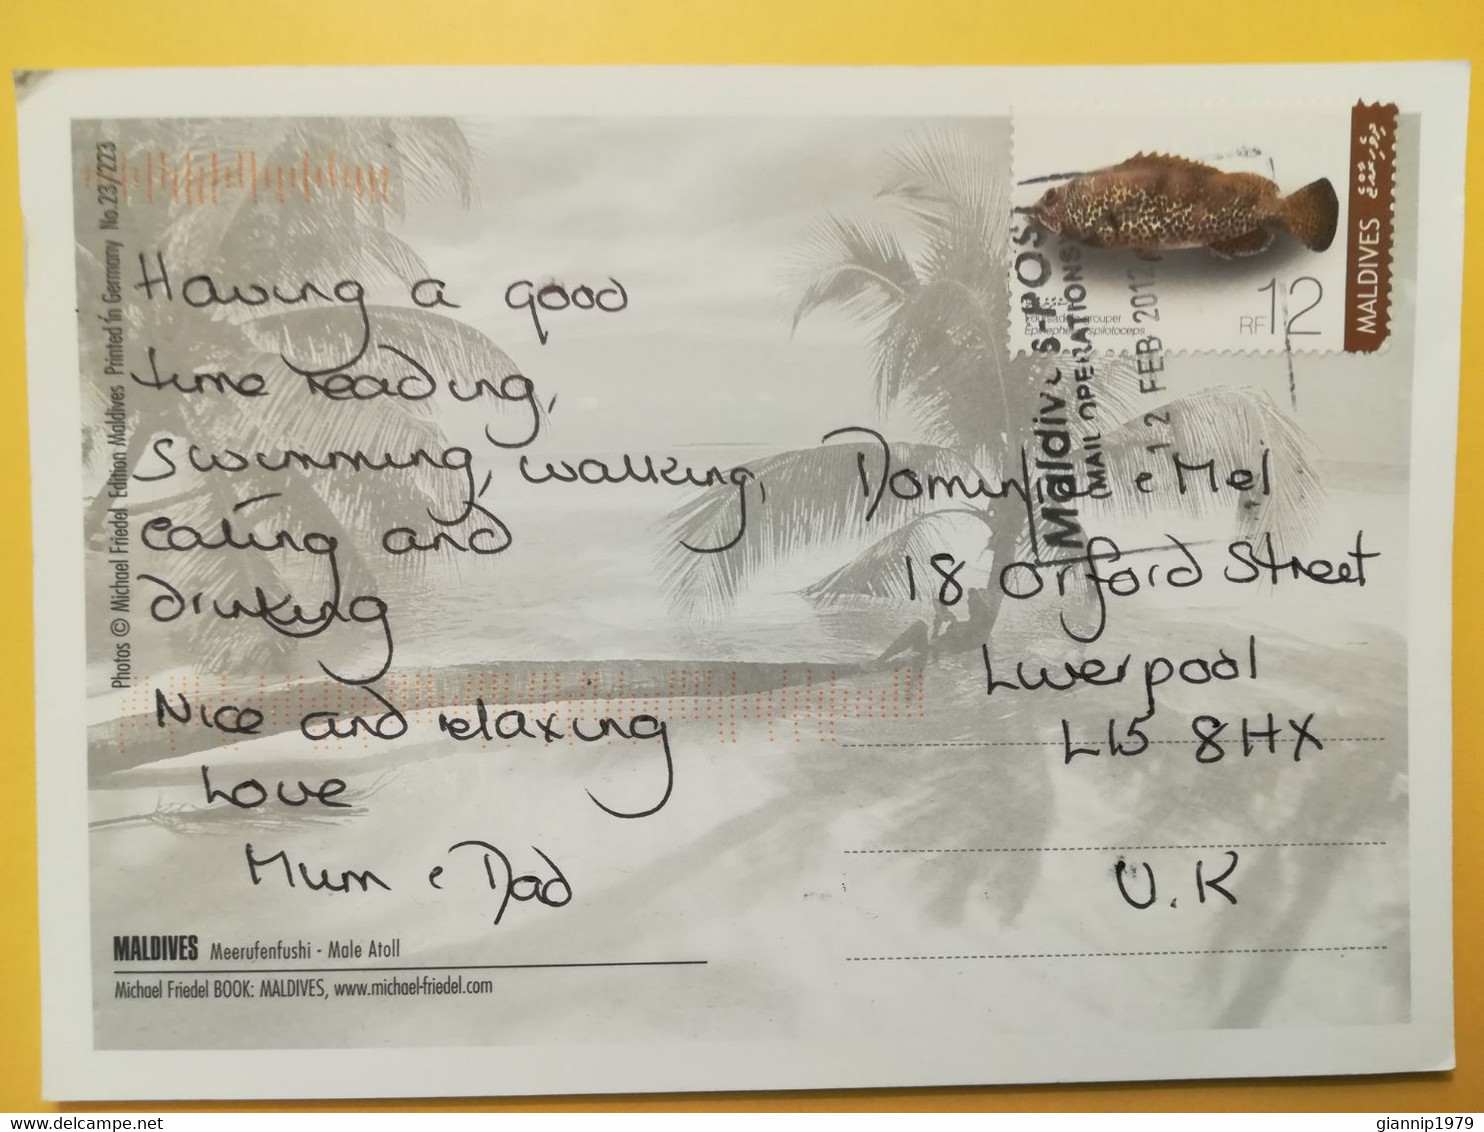 Having a good
time reading,
swimming, walking,
eating and
drinking
Nice and relaxing
Love
Mum & Dad
& Mel
18 Orford Street
Liverpool
L15 8HX
U.K
MALDIVES Meerufenfushi - Male Atoll
Michael Friedel BOOK: MALDIVES, www.michael-friedel.com
Photos © Michael Friedel Edition Maldives Printed in Germany No.23/223
MALDIVES
RF12
grouper
spilotoceps
Maldives-Post
MAIL OPERATIONS
12 FEB 2012
giannip1979